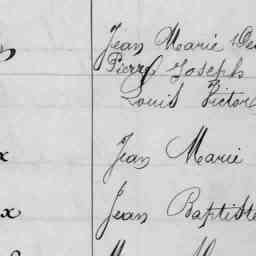 Jean Marie
Pierre Joseph
Louis Victor
x Jean Marie
x Jean Baptiste